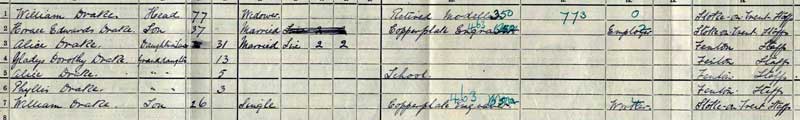 1 William Drake. Head 77 Widower. Retired Modeller 350 773 0 Stoke-on-Trent Staffs
2 Horace Edwards Drake. Son 37 Married Copperplate Engraver 463 Employer Stoke-on-Trent Staffs
3 Alice Drake. Daughter in law 31 Married Six 2 2 Fenton Staffs
4 Gladys Dorothy Drake. Granddaughter 13 Fenton Staffs
5 Alice Drake. " " 5 School. Fenton Staffs
6 Phyllis Drake. " " 3 Fenton Staffs
7 William Drake. Son 26 Single Copperplate Engraver 463 Worker Stoke-on-Trent Staffs
8